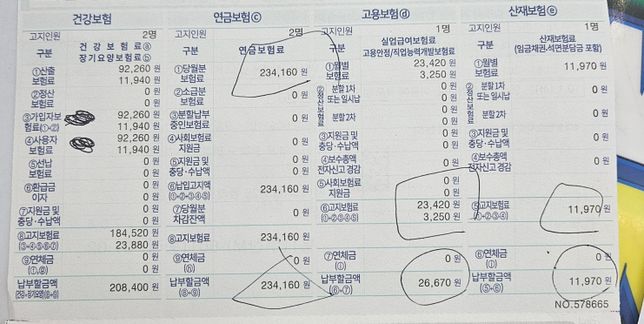 건강보험 연금보험ⓒ 고용보험ⓓ 산재보험ⓔ
고지인원 2명 고지인원 2명 고지인원 1명 고지인원 1명
구분 건강보험료ⓐ 장기요양보험료ⓑ 구분 연금보험료 구분 실업급여보험료 고용안정/직업능력개발보험료 구분 산재보험료 (임금채권·석면분담금 포함)
①산출보험료 92,260 원 11,940 원 ①당월분보험료 234,160 원 ①월별보험료 23,420 원 3,250 원 ①월별보험료 11,970 원
②정산보험료 0 원 0 원 ②소급분보험료 0 원 ②정산보험료 분할 1차 또는 일시납 0 원 0 원 ②정산보험료 분할 1차 또는 일시납 0 원
③가입자보험료(①+②) 92,260 원 11,940 원 ③분할납부 중인보험료 0 원 분할 2차 0 원 0 원 분할 2차 0 원
④사용자보험료 92,260 원 11,940 원 ④사회보험료지원금 0 원 ③지원금 및 충당·수납액 0 원 ③지원금 및 충당·수납액 0 원
⑤선납보험료 0 원 0 원 ⑤지원금 및 충당·수납액 0 원 ④보수총액 전자신고 경감 0 원 ④보수총액 전자신고 경감 0 원
⑥환급금이자 0 원 0 원 ⑥납입고지액 (①+②+③-④-⑤) 234,160 원 ⑤사회보험료지원금 0 원 0 원
⑦지원금 및 충당·수납액 0 원 0 원 ⑦당월분 차감잔액 0 원 ⑥고지보험료 23,420 원 3,250 원 ⑤고지보험료 11,970 원
⑧고지보험료 184,520 원 23,880 원 ⑧고지보험료 234,160 원
⑨연체금 0 원 0 원 ⑨연체금 0 원 ⑦연체금 0 원 ⑥연체금 0 원
납부할금액 208,400 원 납부할금액 (⑧+⑨) 234,160 원 납부할금액 (⑥+⑦) 26,670 원 납부할금액 (⑤+⑥) 11,970 원
NO.578665